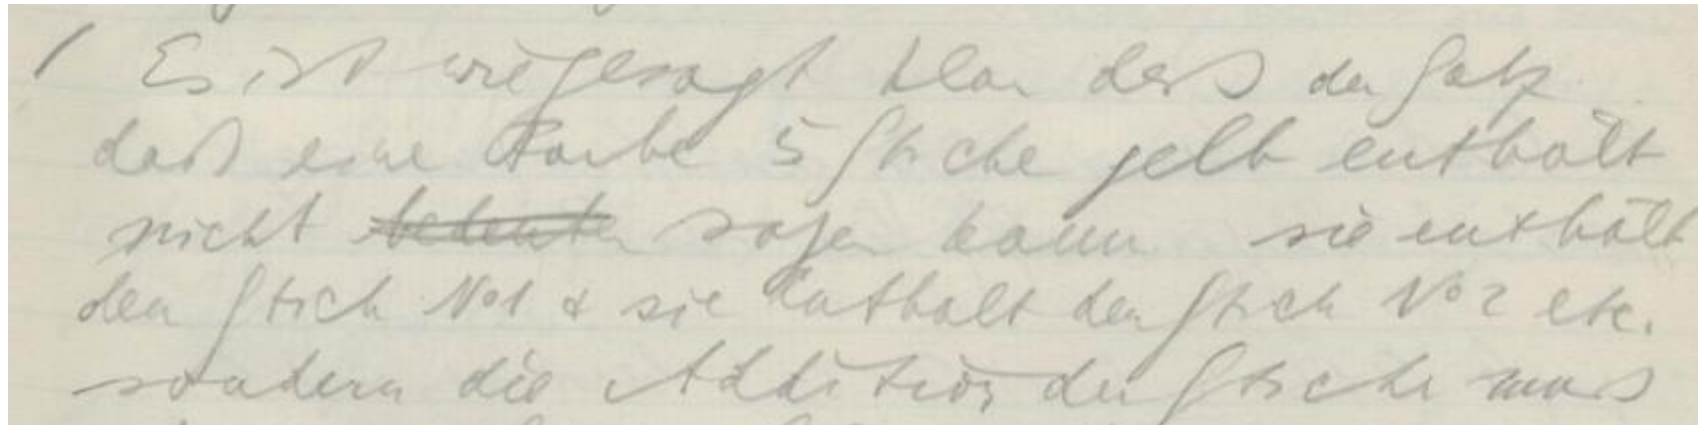 / Es ist wie gesagt klar dass der Satz
dass eine Farbe 5 Stiche gelb enthält
nicht bedeuten sagen kann sie enthält
den Stich No1 & sie enthält den Stich No2 etc.
sondern die Addition der Stiche muss